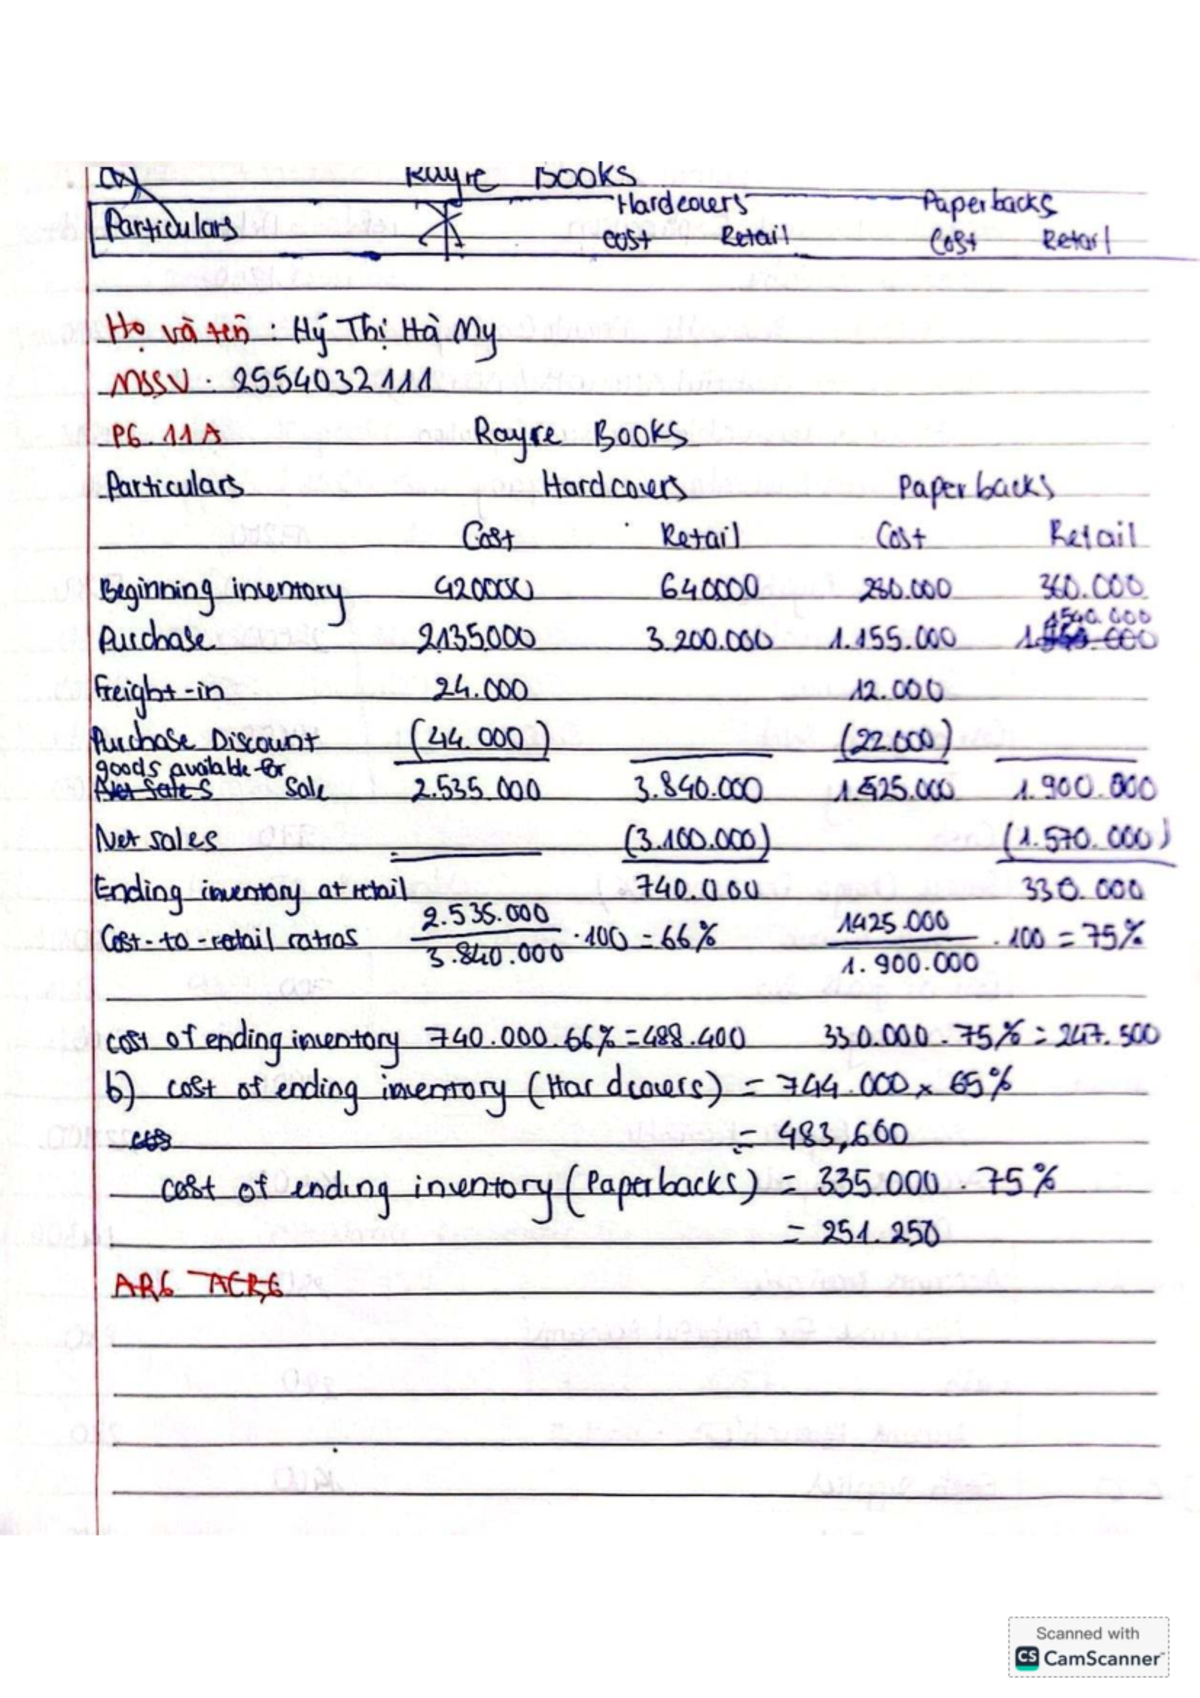 Rayre BOOKS
Particulars Hardcovers Paperbacks
Cost Retail Cost Retail
Họ và tên : Hý Thị Hà My
MSSV : 2554032111
P6.11A Rayre BOOKS
Particulars Hardcovers Paperbacks
Cost Retail Cost Retail
Beginning inventory 420000 640000 280.000 360.000
1540.000
Purchase 2135000 3.200.000 1.155.000
Freight-in 24.000 12.000
Purchase Discount (44.000) (22000)
goods available for
Sale 2.535.000 3.840.000 1.425.000 1.900.000
Net sales (3.100.000) (1.570.000)
Ending inventory at retail 740.000 330.000
Cost-to-retail ratios 2.535.000 / 3.840.000 . 100 = 66% 1425.000 / 1.900.000 . 100 = 75%
cost of ending inventory 740.000.66% = 488.400 330.000 . 75% = 247.500
b) cost of ending inventory (Hardcovers) = 744.000 x 65%
= 483,600
cost of ending inventory (Paperbacks) = 335.000 . 75%
= 251.250
Scanned with
CS CamScanner